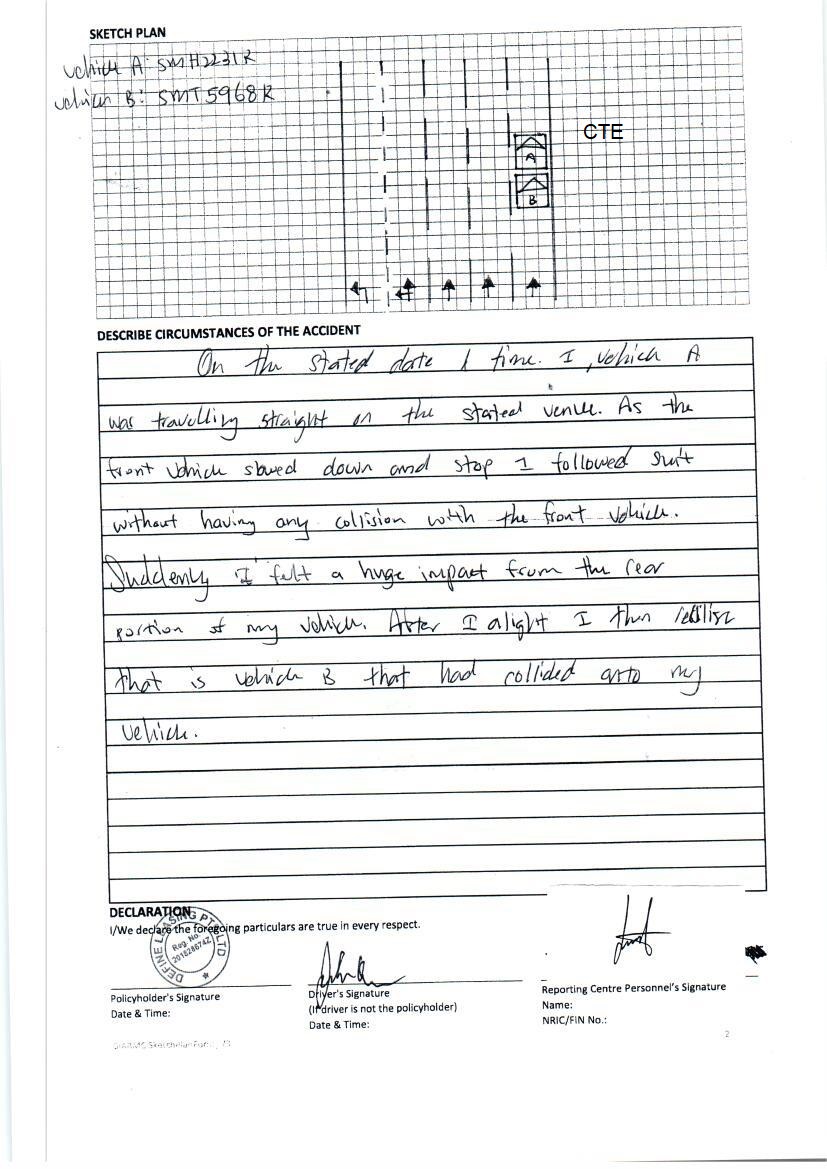 SKETCH PLAN
vehicle A: SMH2231R
vehicle B: SMT5968R
CTE
A
B
DESCRIBE CIRCUMSTANCES OF THE ACCIDENT
On the stated date & time. I, vehicle A
was travelling straight on the stated venue. As the
front vehicle slowed down and stop I followed suit
without having any collision with the front vehicle.
Suddenly I felt a huge impact from the rear
portion of my vehicle. After I alight I then realise
that is vehicle B that had collided onto my
vehicle.
DECLARATION
I/We declare the foregoing particulars are true in every respect.
DEFINE LEASING PTE LTD
Reg. No.
201828674Z
Policyholder's Signature
Date & Time:
Driver's Signature
(If driver is not the policyholder)
Date & Time:
Reporting Centre Personnel's Signature
Name:
NRIC/FIN No.:
2